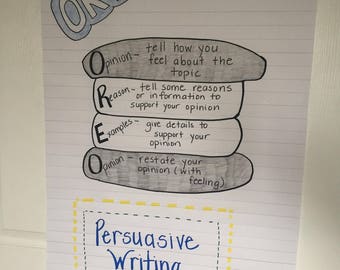 Opinion - tell how you
feel about the
topic
Reason - tell some reasons
or information to
support your opinion
Examples - give details to
support your
opinion
Opinion - restate your
opinion (with
feeling)
Persuasive
Writing